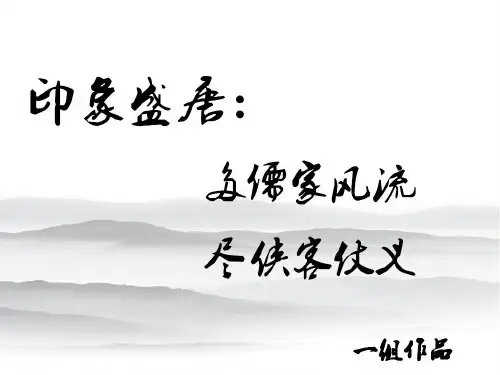 印象盛唐：
多儒家风流
尽侠客仗义
一组作品